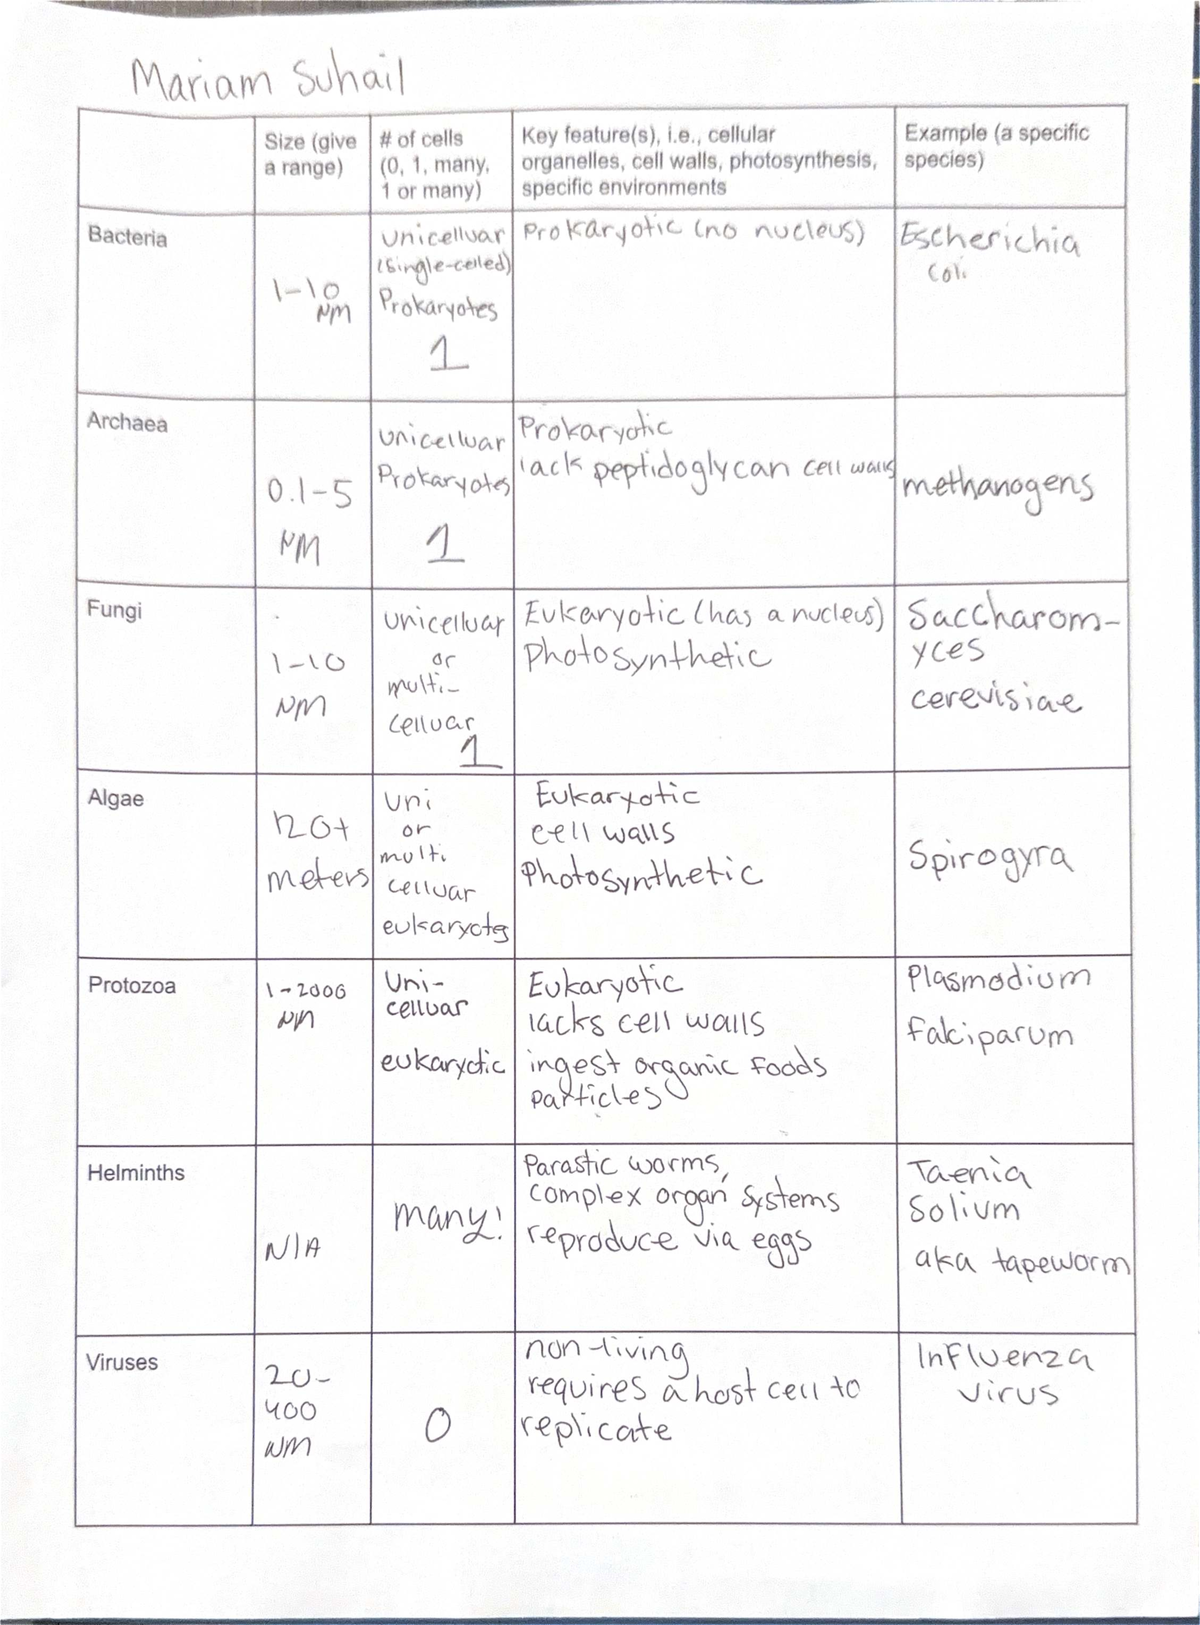 Mariam Suhail
Size (give
a range)
# of cells
(0, 1, many,
1 or many)
Key feature(s), i.e., cellular
organelles, cell walls, photosynthesis,
specific environments
Example (a specific
species)
Bacteria
1-10
NM
unicelluar
(single-celled)
Prokaryotes
1
Prokaryotic (no nucleus)
Escherichia
coli
Archaea
0.1-5
NM
unicelluar
Prokaryotes
1
Prokaryotic
lack peptidoglycan cell walls
methanogens
Fungi
1-10
NM
unicelluar
or
multi-
celluar
1
Eukaryotic (has a nucleus)
Photosynthetic
Saccharom-
yces
cerevisiae
Algae
120+
meters
uni
or
multi
celluar
eukaryotes
Eukaryotic
cell walls
Photosynthetic
Spirogyra
Protozoa
1-2000
NM
Uni-
celluar
eukaryotic
Eukaryotic
lacks cell walls
ingest organic foods
particles
Plasmodium
falciparum
Helminths
N/A
many!
Parastic worms,
complex organ systems
reproduce via eggs
Taenia
Solium
aka tapeworm
Viruses
20-
400
NM
0
non-living
requires a host cell to
replicate
Influenza
virus